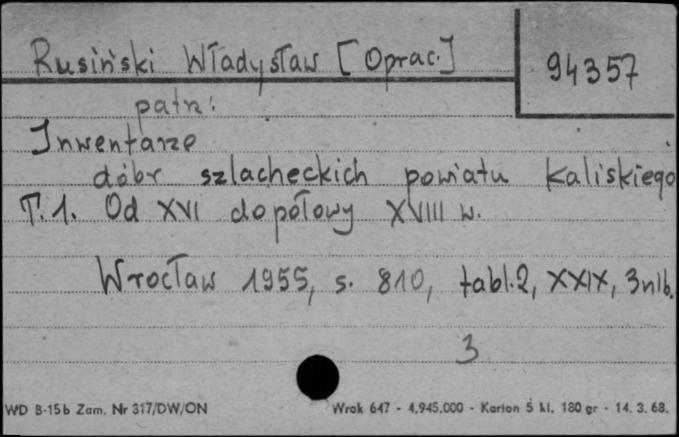 Rusiński Władysław [Oprac.]
94357
patrz:
Inwentarze
dóbr szlacheckich powiatu Kaliskiego
T. 1. Od XVI do połowy XVIII w.
Wrocław 1955, s. 810, tabl. 2, XXIX, 3 nlb.
3
WD B-15b Zam. Nr 317/DW/ON
Wrak 647 - 4.945.000 - Karton 5 kl. 180 gr - 14. 3. 68.